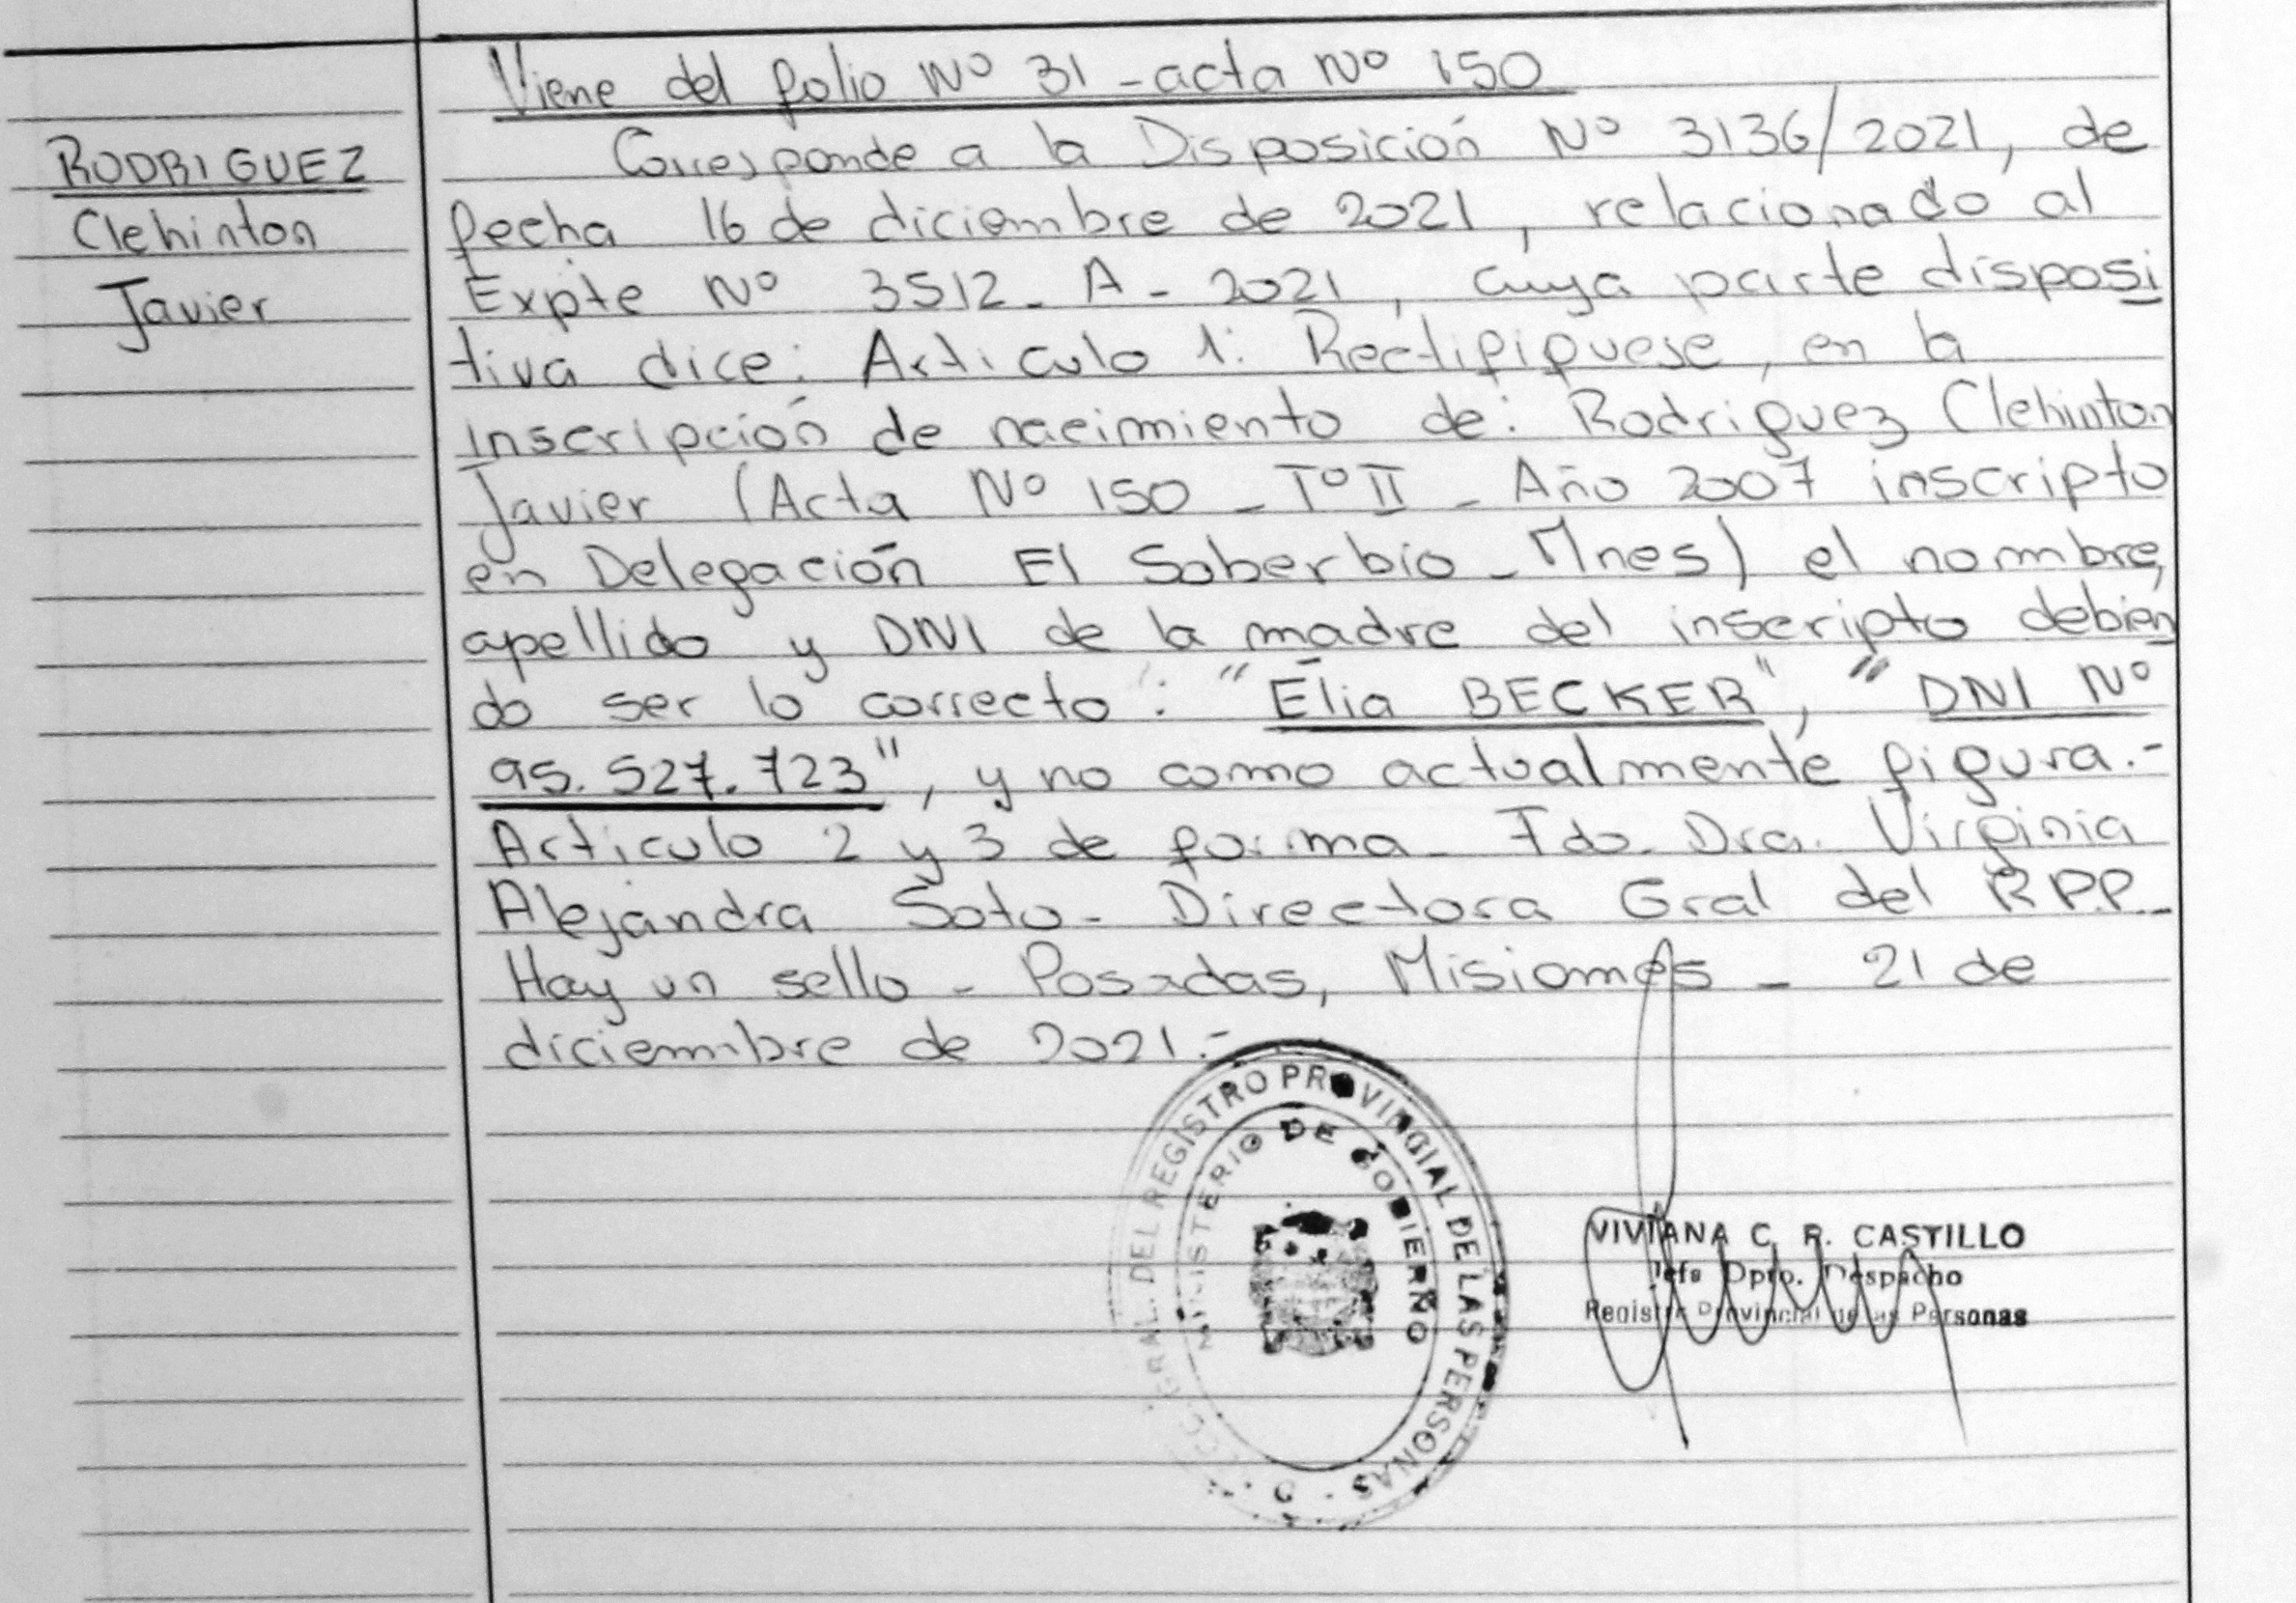 Viene del folio Nº 31 - acta Nº 150
RODRIGUEZ
Clehinton
Javier
Corresponde a la Disposición Nº 3136/2021, de
fecha 16 de diciembre de 2021, relacionado al
Expte Nº 3512 - A - 2021, cuya parte disposi
tiva dice: Articulo 1: Rectifiquese, en la
inscripción de nacimiento de: Rodriguez Clehinton
Javier (Acta Nº 150 - Tº II - Año 2007 inscripto
en Delegación El Soberbio - Mnes) el nombre,
apellido y DNI de la madre del inscripto debien
do ser lo correcto: "Elia BECKER", "DNI Nº
95.527.723", y no como actualmente figura.-
Articulo 2 y 3 de forma - Fdo. Dra. Virginia
Alejandra Soto - Directora Gral del RPP -
Hay un sello - Posadas, Misiones - 21 de
diciembre de 2021.-
GRAL. DEL REGISTRO PROVINCIAL DE LAS PERSONAS
MINISTERIO DE GOBIERNO
VIVIANA C. R. CASTILLO
Jefe Dpto. Despacho
Registro Provincial de las Personas